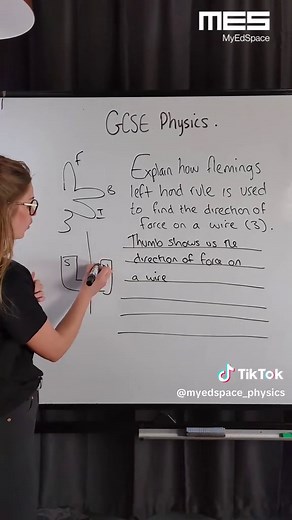 MES
MyEdSpace
GCSE Physics.
F
B
I
Explain how flemings
left hand rule is used
to find the direction of
force on a wire (3).
Thumb shows us the
direction of force on
a wire
S
TikTok
@myedspace_physics